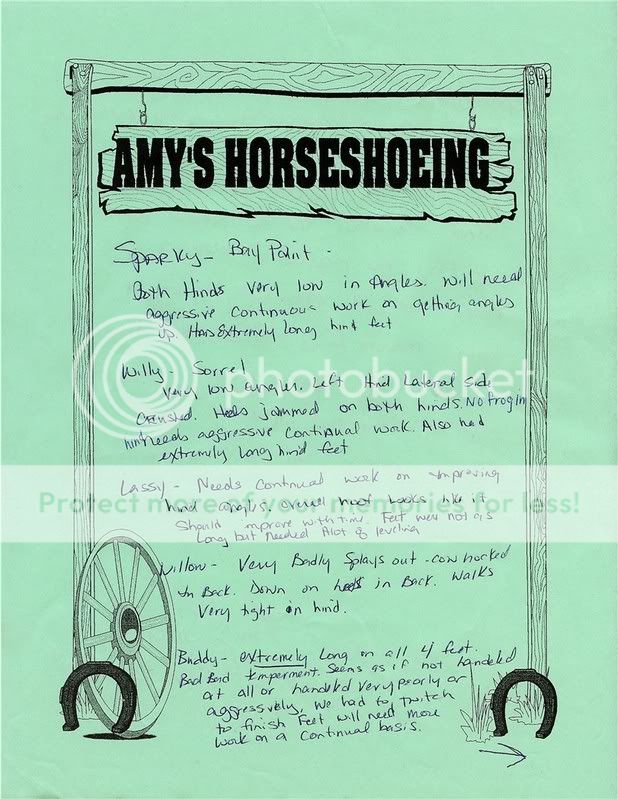 AMY'S HORSESHOEING
Sparky - Bay Paint -
Both Hinds very low in Angles. Will need
aggressive continuous work on getting angles
up. Has Extremely Long hind feet
Willy - Sorrel
Very low angles. Left Hind Lateral side
Crushed. Heels jammed on both hinds. No frog in
hind needs aggressive continual work. Also had
extremely long hind feet
photobucket
Lassy - Needs Continual work on improving
hind angles. overall hoof Looks like it
Should improve with time. Feet were not as
Long but Needed Alot of leveling
Protect more of your memories for less!
Willow - Very Badly Splays out - cow hocked
in Back. Down on heels in Back. Walks
Very tight in hind.
Buddy - extremely Long on all 4 feet.
Bad Bad temperment. Seems as if not handeled
at all or handeled very poorly or
aggressively. We had to twitch
to finish Feet will need more
work on a continual basis.